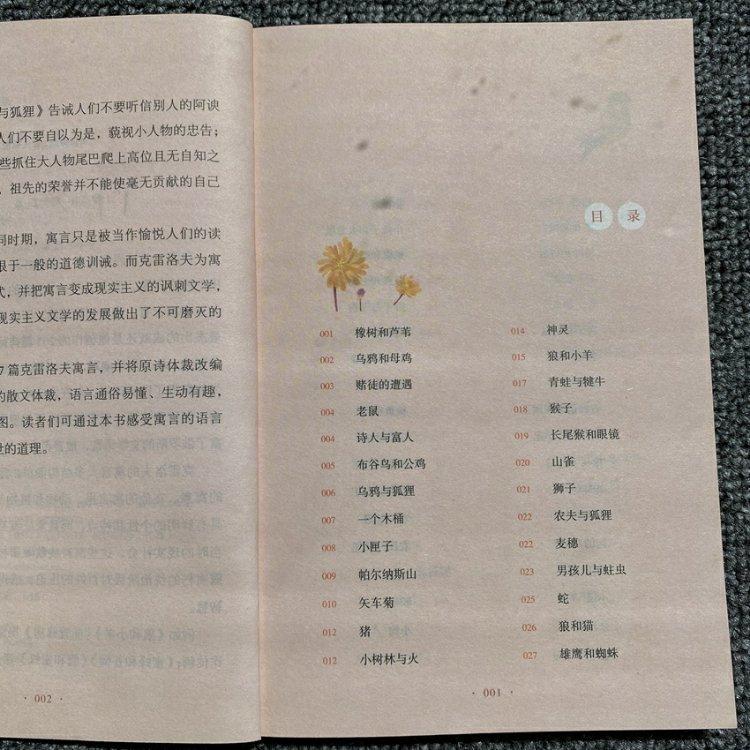 与狐狸》告诫人们不要听信别人的阿谀
人们不要自以为是，藐视小人物的忠告；
些抓住大人物尾巴爬上高位且无自知之
，祖先的荣誉并不能使毫无贡献的自己
同时期，寓言只是被当作愉悦人们的读
限于一般的道德训诫。而克雷洛夫为寓
式，并把寓言变成现实主义的讽刺文学，
现实主义文学的发展做出了不可磨灭的
7篇克雷洛夫寓言，并将原诗体裁改编
的散文体裁，语言通俗易懂、生动有趣，
图。读者们可通过本书感受寓言的语言
世的道理。
· 002 ·
目 录
001 橡树和芦苇
002 乌鸦和母鸡
003 赌徒的遭遇
004 老鼠
004 诗人与富人
005 布谷鸟和公鸡
006 乌鸦与狐狸
007 一个木桶
008 小匣子
009 帕尔纳斯山
010 矢车菊
012 猪
012 小树林与火
014 神灵
015 狼和小羊
017 青蛙与犍牛
018 猴子
019 长尾猴和眼镜
020 山雀
021 狮子
022 农夫与狐狸
022 麦穗
023 男孩儿与蛀虫
025 蛇
026 狼和猫
027 雄鹰和蜘蛛
· 001 ·